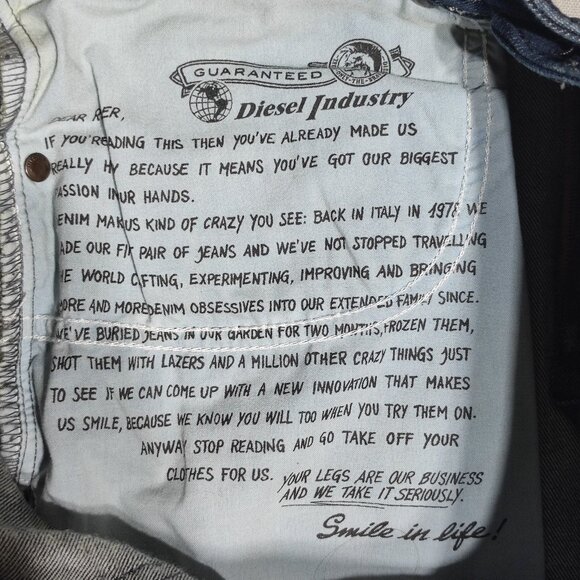 GUARANTEED
Diesel Industry
DEAR RER,
IF YOU'READING THIS THEN YOU'VE ALREADY MADE US
REALLY BECAUSE IT MEANS YOU'VE GOT OUR BIGGEST
PASSION HANDS.
DENIM KIND OF CRAZY YOU SEE: BACK IN ITALY IN 1978 WE
MADE OUR PAIR OF JEANS AND WE'VE NOT STOPPED TRAVELLING
THE WORLD EXPERIMENTING, IMPROVING AND BRINGING
MORE AND MORE DENIM OBSESSIVES INTO OUR EXTENDED FAMILY SINCE.
WE'VE BURIED JEANS IN OUR GARDEN FOR TWO MONTHS, FROZEN THEM,
SHOT THEM WITH LAZERS AND A MILLION OTHER CRAZY THINGS JUST
TO SEE IF WE CAN COME UP WITH A NEW INNOVATION THAT MAKES
US SMILE, BECAUSE WE KNOW YOU WILL TOO WHEN YOU TRY THEM ON.
ANYWAY STOP READING AND GO TAKE OFF YOUR
CLOTHES FOR US. YOUR LEGS ARE OUR BUSINESS
AND WE TAKE IT SERIOUSLY.
Smile in life!